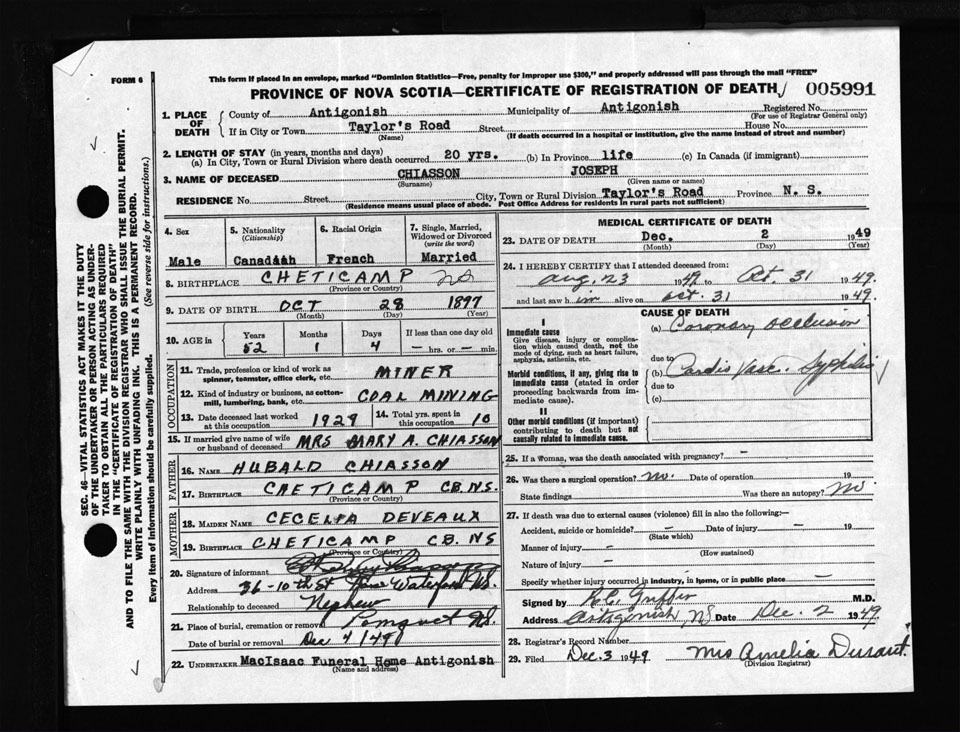 FORM 6
This form if placed in an envelope, marked "Dominion Statistics—Free, penalty for improper use $300," and properly addressed will pass through the mail "FREE"
PROVINCE OF NOVA SCOTIA—CERTIFICATE OF REGISTRATION OF DEATH 005991
1. PLACE OF DEATH
County of Antigonish Municipality of Antigonish Registered No.
(For use of Registrar General only)
If in City or Town Taylor's Road Street House No.
(Name) (If death occurred in a hospital or institution, give the name instead of street and number)
2. LENGTH OF STAY (in years, months and days)
(a) In City, Town or Rural Division where death occurred 20 yrs. (b) In Province life (c) In Canada (if immigrant)
3. NAME OF DECEASED CHIASSON JOSEPH
(Surname) (Given name or names)
RESIDENCE No. Street City, Town or Rural Division Taylor's Road Province N. S.
(Residence means usual place of abode. Post Office Address for residents in rural parts not sufficient)
4. Sex
Male
5. Nationality
(Citizenship)
Canadáàh
6. Racial Origin
French
7. Single, Married, Widowed or Divorced
(write the word)
Married
8. BIRTHPLACE CHETICAMP NS
(Province or Country)
9. DATE OF BIRTH OCT 28 1897
(Month) (Day) (Year)
10. AGE in
Years Months Days If less than one day old
52 1 4 — hrs. or — min.
OCCUPATION
11. Trade, profession or kind of work as spinner, teamster, office clerk, etc. MINER
12. Kind of industry or business, as cotton-mill, lumbering, bank, etc. COAL MINING
13. Date deceased last worked at this occupation 1929
14. Total yrs. spent in this occupation 10
15. If married give name of wife or husband of deceased MRS MARY A. CHIASSON
FATHER
16. NAME HUBALD CHIASSON
17. BIRTHPLACE CHETICAMP CB. NS.
(Province or Country)
MOTHER
18. MAIDEN NAME CECELIA DEVEAUX
19. BIRTHPLACE CHETICAMP CB. NS
(Province or Country)
20. Signature of informant
Address 36-10th St Waterford NS.
Relationship to deceased Nephew
21. Place of burial, cremation or removal Pomquet NS.
Date of burial or removal Dec 4/49
22. UNDERTAKER MacIsaac Funeral Home Antigonish
MEDICAL CERTIFICATE OF DEATH
23. DATE OF DEATH Dec. 2 1949
(Month) (Day) (Year)
24. I HEREBY CERTIFY that I attended deceased from:
Aug. 23 1949 to Oct. 31 1949.
and last saw him alive on Oct. 31 1949.
CAUSE OF DEATH
I
Immediate cause
Give disease, injury or complication which caused death, not the mode of dying, such as heart failure, asphyxia, asthenia, etc.
(a) Coronary occlusion
due to
Morbid conditions, if any, giving rise to immediate cause (stated in order proceeding backwards from immediate cause).
(b) Cardio Vasc. Syphilis
due to
(c)
II
Other morbid conditions (if important) contributing to death but not causally related to immediate cause.
25. If a Woman, was the death associated with pregnancy? —
26. Was there a surgical operation? no. Date of operation 19
State findings Was there an autopsy? no
27. If death was due to external causes (violence) fill in also the following:—
Accident, suicide or homicide? — Date of injury — 19
(State which)
Manner of injury —
(How sustained)
Nature of injury —
Specify whether injury occurred in industry, in home, or in public place —
Signed by Griffin M.D.
Address Antigonish, NS Date Dec. 2 1949
28. Registrar's Record Number
29. Filed Dec. 3 1949 Mrs Amelia Durant.
(Division Registrar)
SEC. 46—VITAL STATISTICS ACT MAKES IT THE DUTY
OF THE UNDERTAKER OR PERSON ACTING AS UNDER-
TAKER TO OBTAIN ALL THE PARTICULARS REQUIRED
IN THE "CERTIFICATE OF REGISTRATION OF DEATH"
AND TO FILE THE SAME WITH THE DIVISION REGISTRAR WHO SHALL ISSUE THE BURIAL PERMIT.
WRITE PLAINLY WITH UNFADING INK. THIS IS A PERMANENT RECORD.
Every item of information should be carefully supplied. (See reverse side for instructions.)